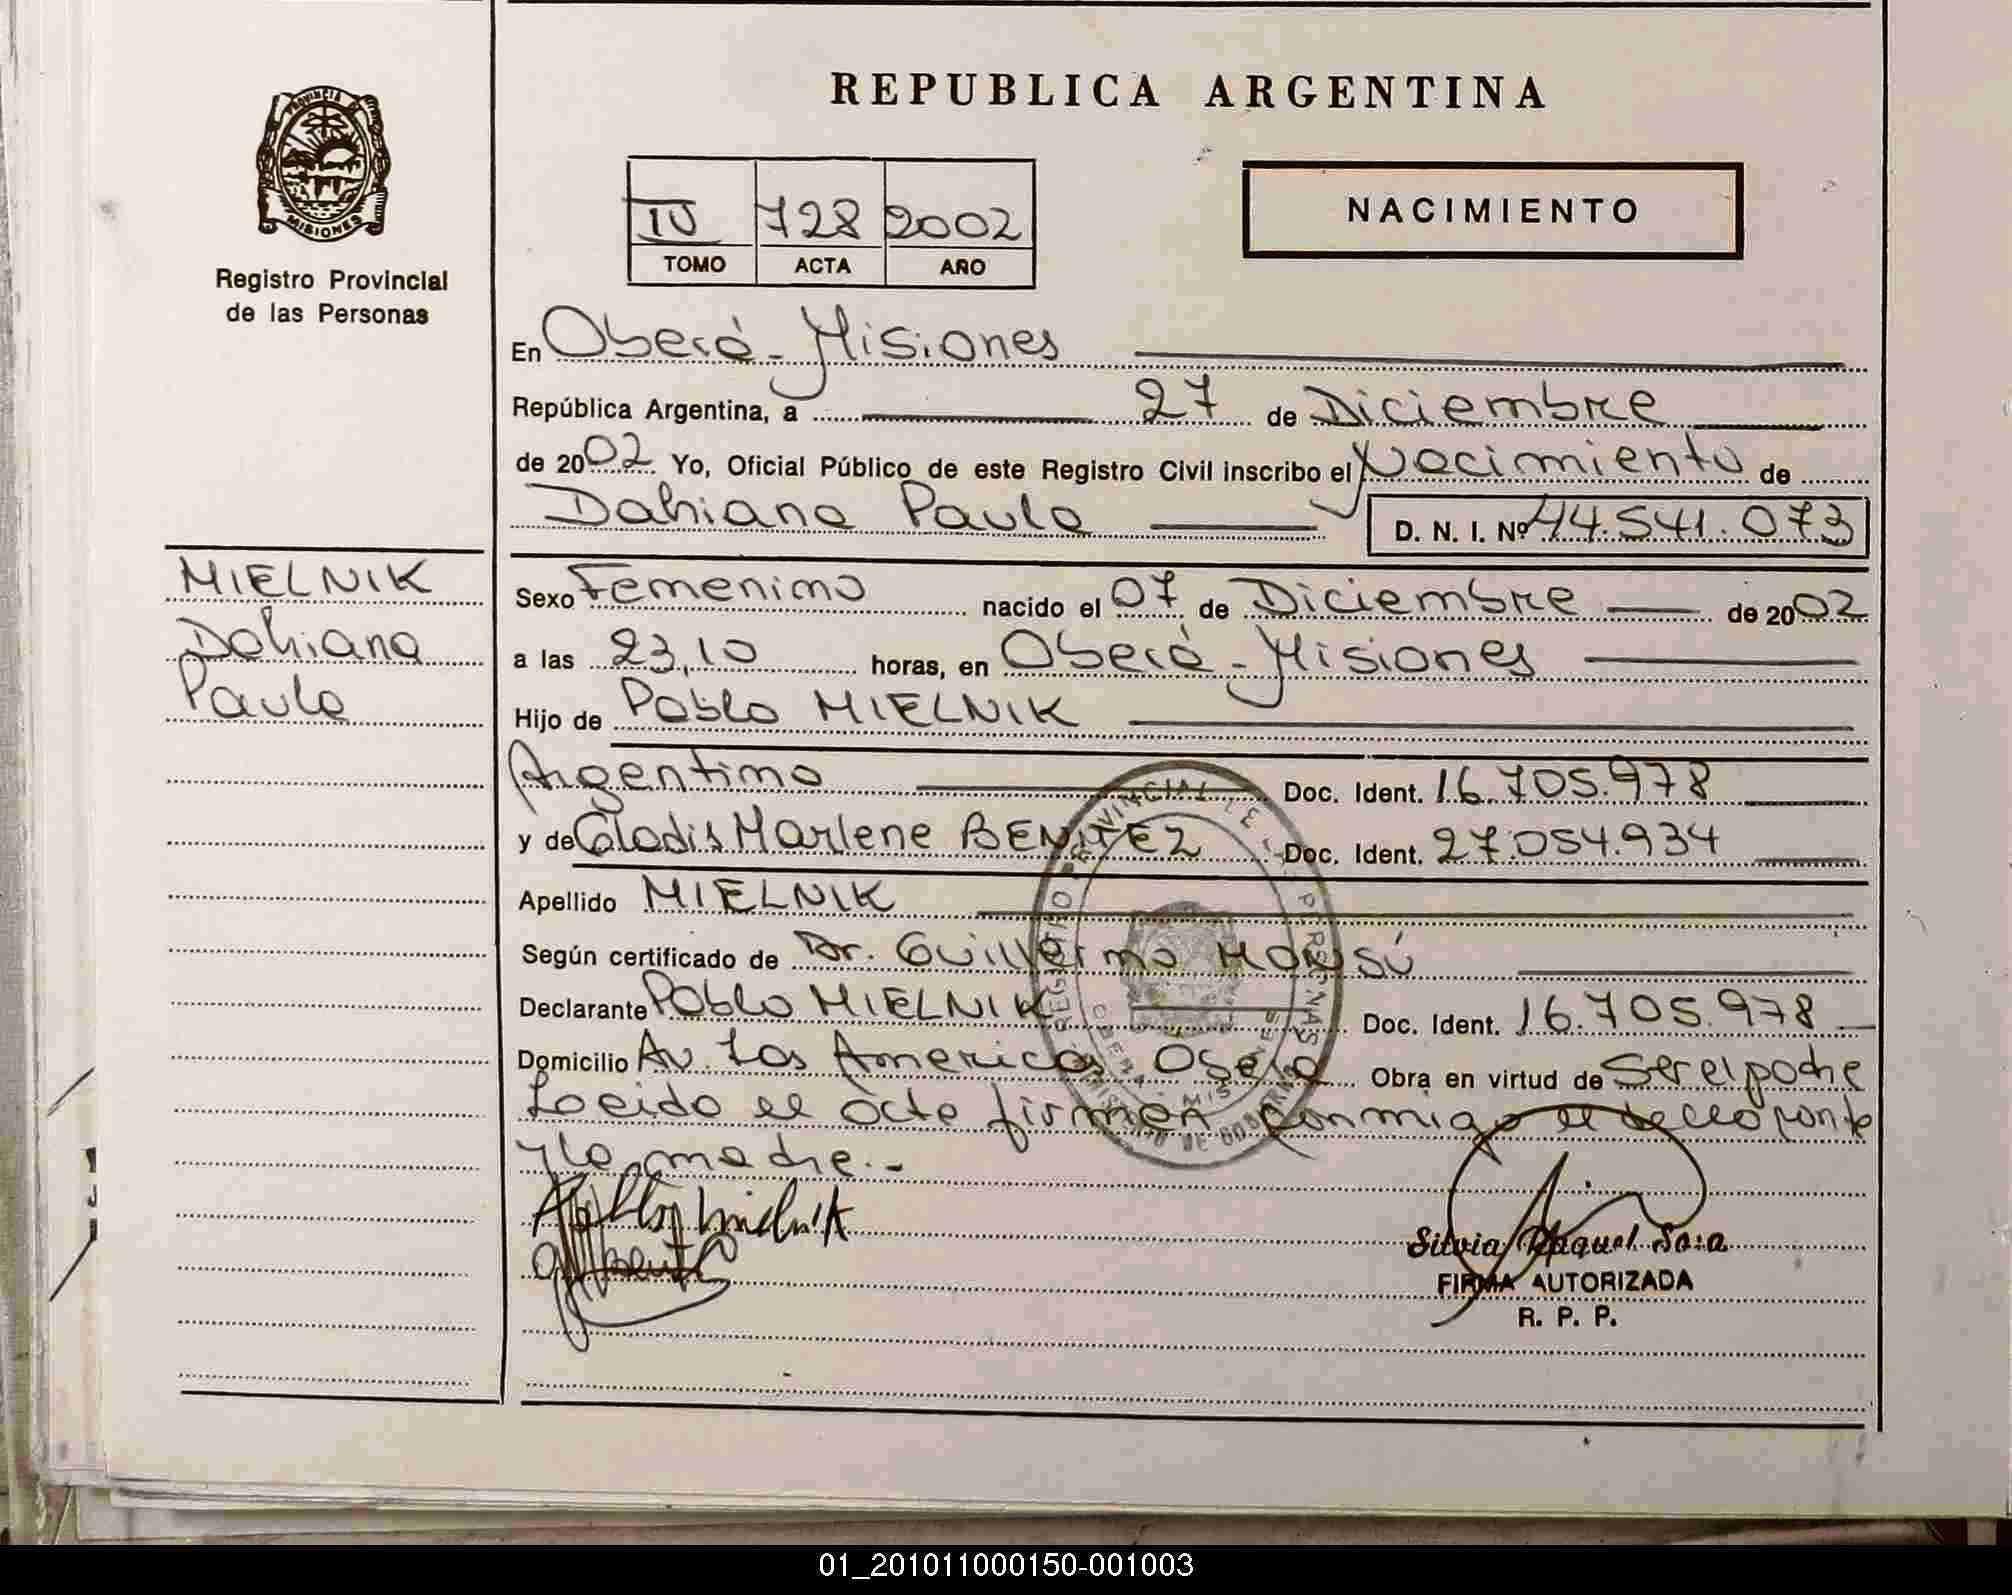 REPUBLICA ARGENTINA
PROVINCIA DE
MISIONES
Registro Provincial
de las Personas
IV 728 2002
TOMO ACTA AÑO
NACIMIENTO
En Oberá - Misiones
República Argentina, a 27 de Diciembre
de 2002 Yo, Oficial Público de este Registro Civil inscribo el Nacimiento de
Dahiana Paula D. N. I. Nº 44.541.073
MIELNIK
Dahiana
Paula
Sexo Femenino nacido el 07 de Diciembre de 2002
a las 23,10 horas, en Oberá - Misiones
Hijo de Pablo MIELNIK
Argentino Doc. Ident. 16.705.978
y de Gladis Marlene BENITEZ Doc. Ident. 27.054.934
Apellido MIELNIK
Según certificado de Dr. Guillermo
Declarante Pablo MIELNIK Doc. Ident. 16.705.978
Domicilio Av. Las Americas Oberá Obra en virtud de Ser el padre
Leida el acta firman conmigo el declarante
y la madre.-
Pablo Mielnik
Silvia Raquel Sosa
FIRMA AUTORIZADA
R. P. P.
REGISTRO PROVINCIAL DE LAS PERSONAS
OBERA MISIONES
MINISTERIO DE GOBIERNO
01_201011000150-001003